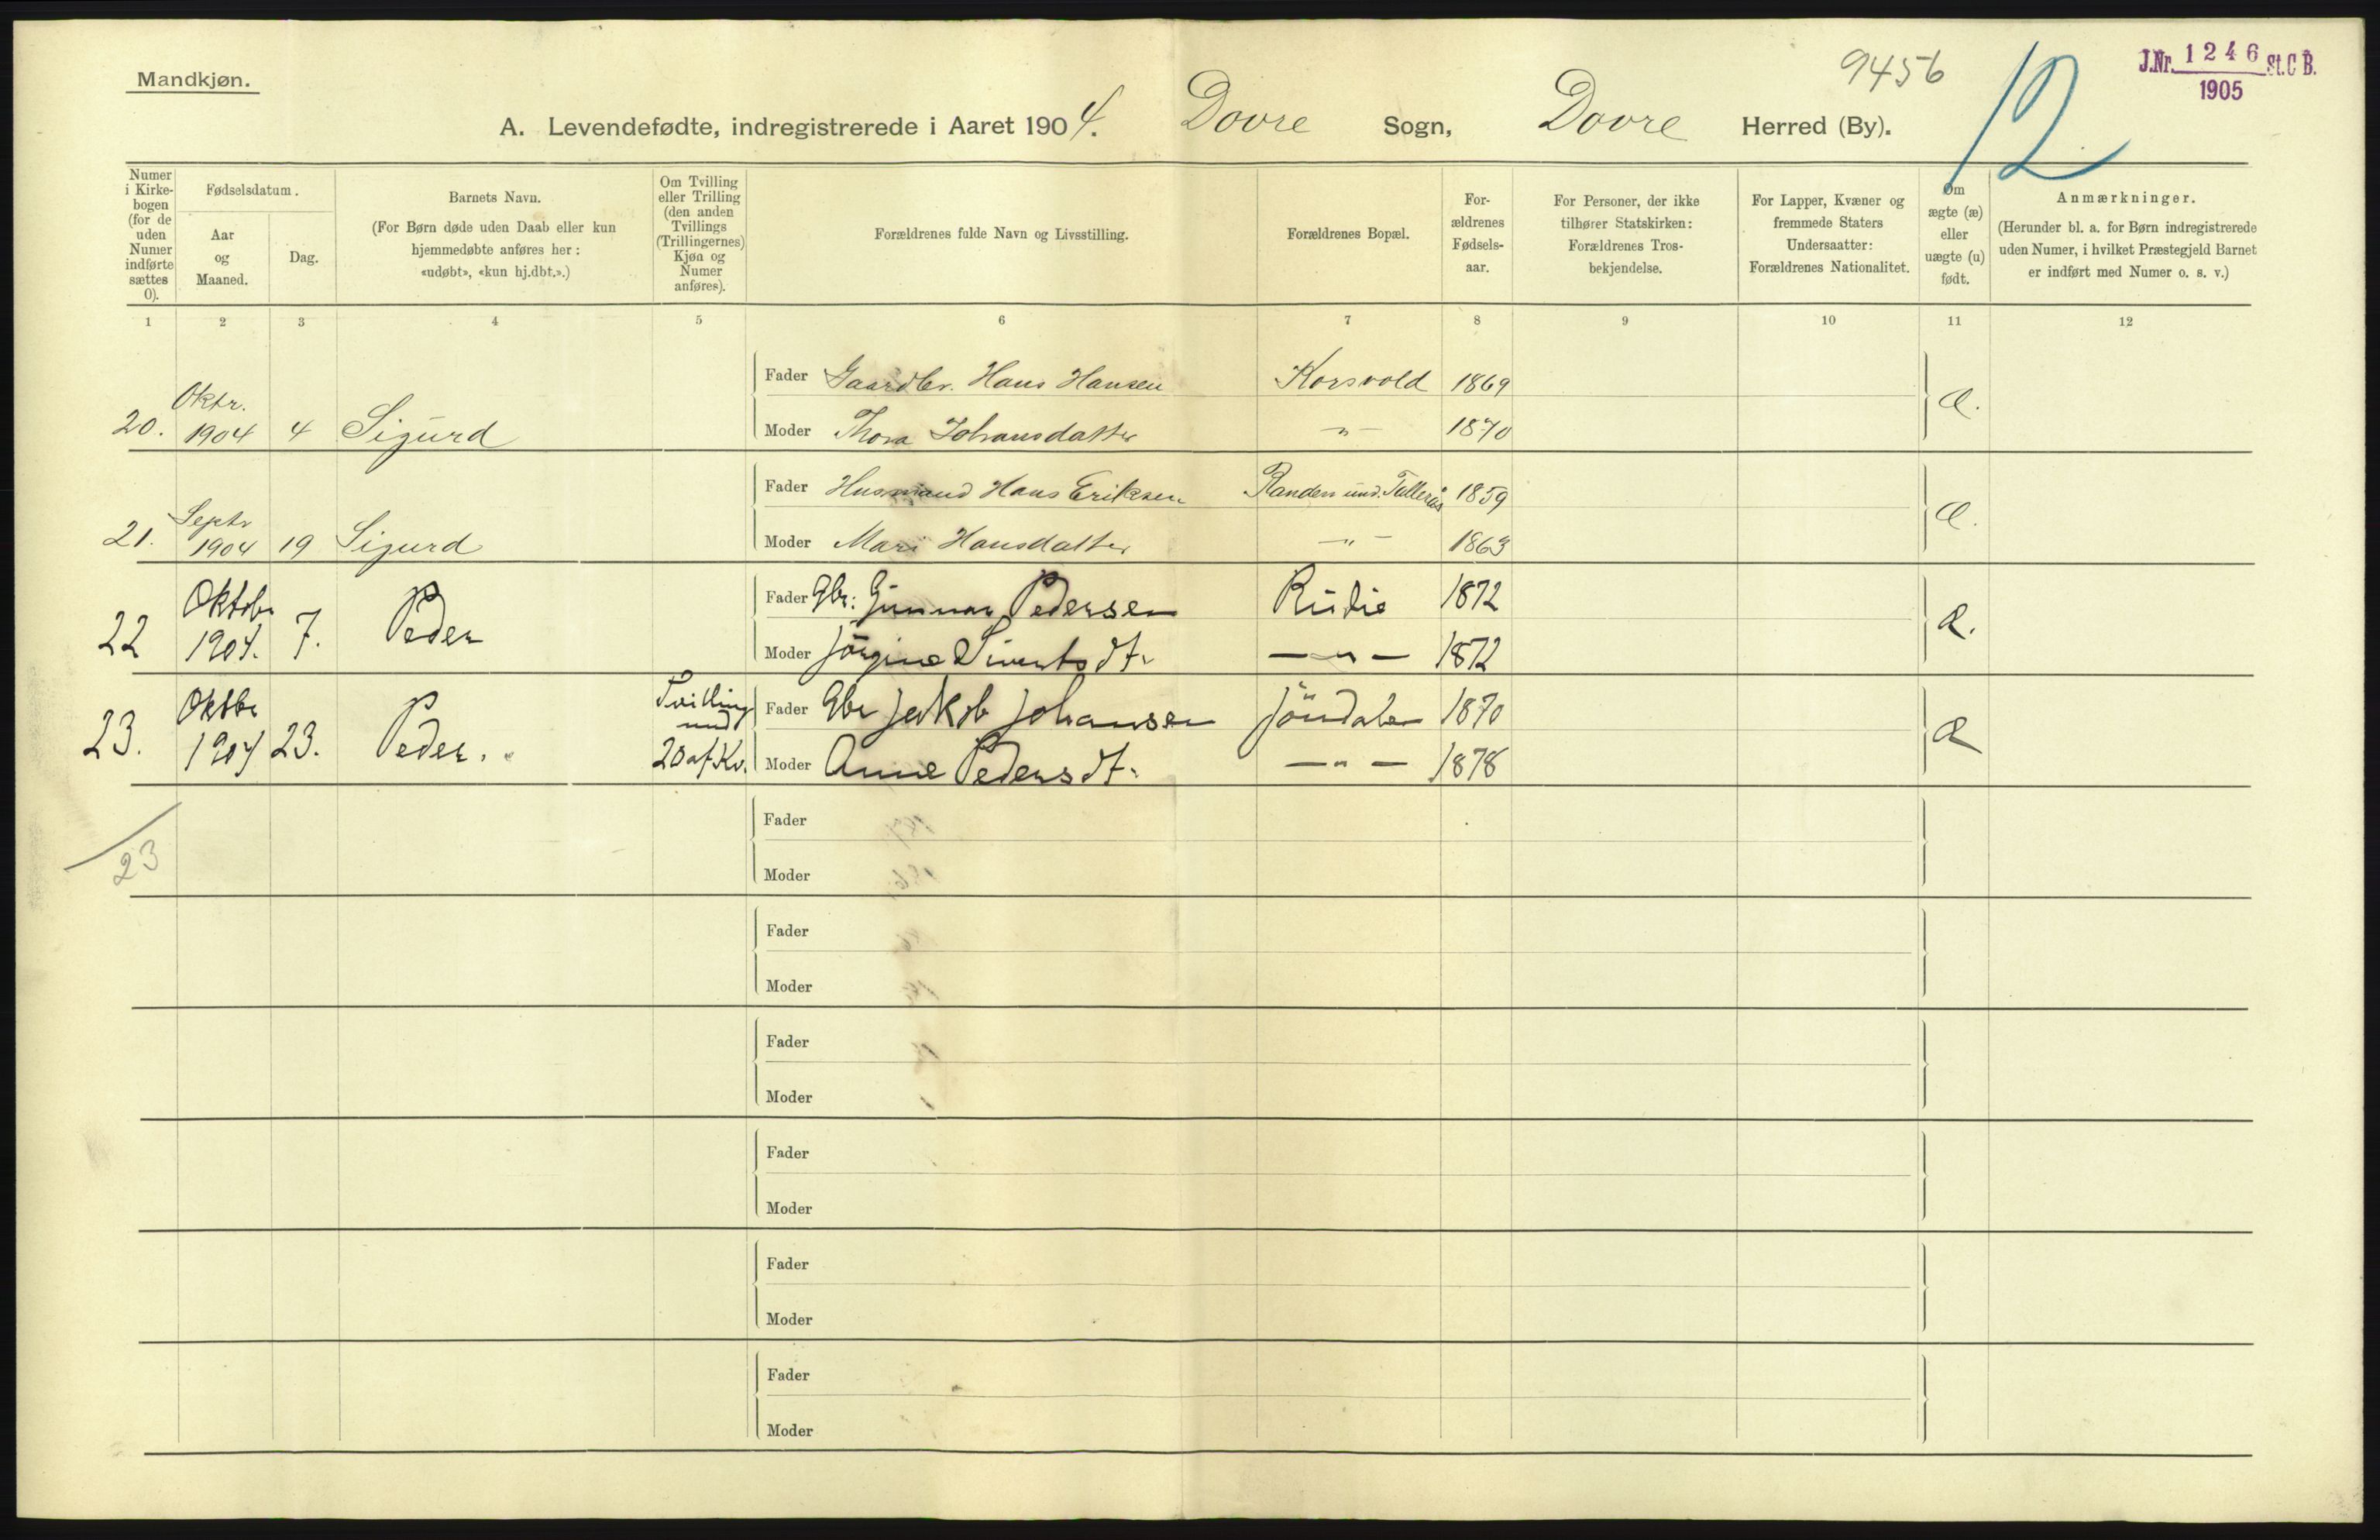 Mandkjøn.
9456
12
J.Nr. 1246 St.C B.
1905
A. Levendefødte, indregistrerede i Aaret 1904. Dovre Sogn, Dovre Herred (By).
Numer i Kirkebogen (for de uden Numer indførte sættes 0).
Fødselsdatum.
Aar og Maaned.
Dag.
Barnets Navn.
(For Børn døde uden Daab eller kun
hjemmedøbte anføres her:
«udøbt», «kun hj.dbt.».)
Om Tvilling
eller Trilling
(den anden
Tvillings
(Trillingernes)
Kjøn og
Numer
anføres).
Forældrenes fulde Navn og Livsstilling.
Forældrenes Bopæl.
For-
ældrenes
Fødsels-
aar.
For Personer, der ikke
tilhører Statskirken:
Forældrenes Tros-
bekjendelse.
For Lapper, Kvæner og
fremmede Staters
Undersaatter:
Forældrenes Nationalitet.
Om
ægte (æ)
eller
uægte (u)
født.
Anmærkninger.
(Herunder bl. a. for Børn indregistrerede
uden Numer, i hvilket Præstegjeld Barnet
er indført med Numer o. s. v.)
1 2 3 4 5 6 7 8 9 10 11 12
Fader Gaardbr. Hans Hansen Korsvold 1869
20. Oktr. 1904 4 Sigurd Moder Thora Johansdatter -"- 1870 æ.
Fader Husmand Hans Eriksen Randen und. Tallerås 1859
21. Septr 1904 19 Sigurd Moder Mari Hansdatter -"- 1863 æ.
Fader Gbr: Gunnar Pedersen Rudie 1872
22 Oktobr 1904. 7. Peder Moder Jörgine Sivertsdt. -"- 1872 æ.
Tvilling med Fader Gbr Jakob Johansen Jöndalen 1870
23. Oktbr 1904 23. Peder. 20 af Kv. Moder Anne Pedersdt. -"- 1878 æ
23
Fader
Moder
Fader
Moder
Fader
Moder
Fader
Moder
Fader
Moder
Fader
Moder